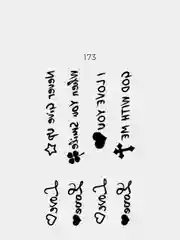 173
NEVER GIVE UP
When You Smile
I LOVE YOU
GOD WITH ME
Love
Love
Love
Love